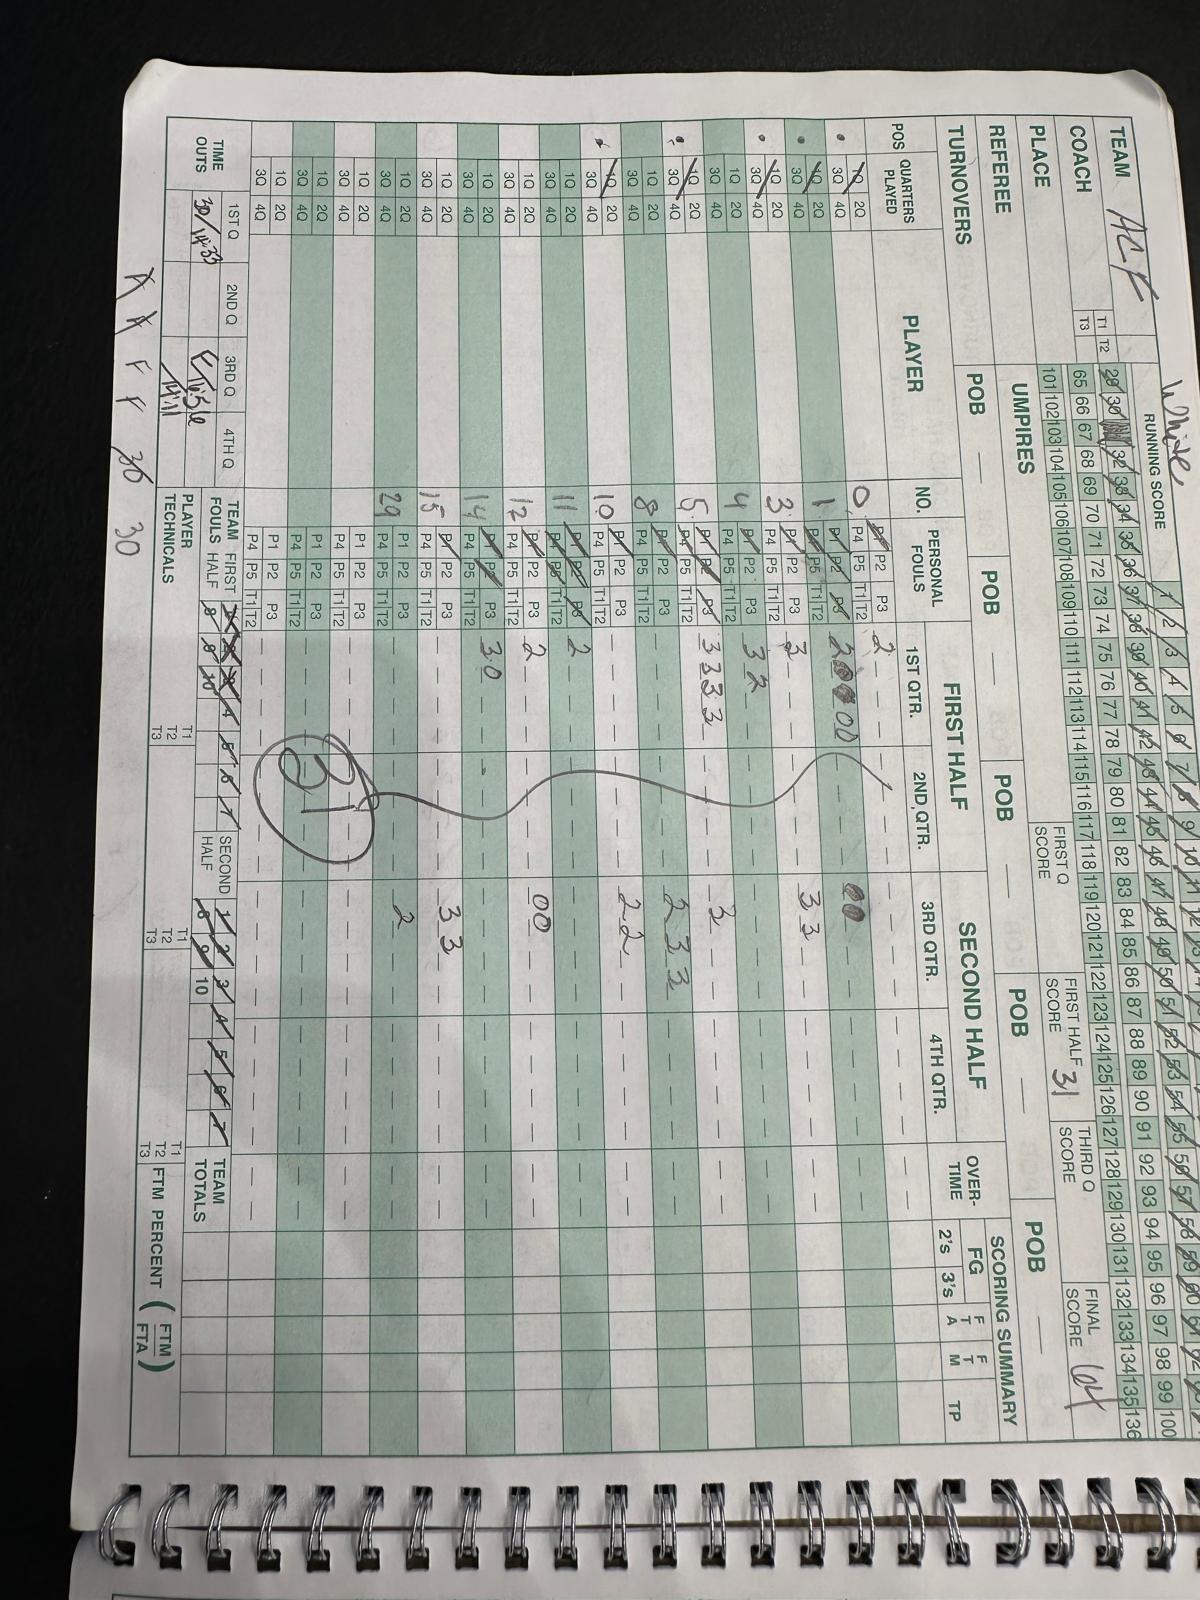 White
TEAM ACF T1 T2 RUNNING SCORE
COACH T3
29 30 32 33 34 35 36 37 38 39 40 41 42 43 44 45 46 47 48 49 50 51 52 53 54 55 56 57 58 59 60
65 66 67 68 69 70 71 72 73 74 75 76 77 78 79 80 81 82 83 84 85 86 87 88 89 90 91 92 93 94 95 96 97 98 99 100
101 102 103 104 105 106 107 108 109 110 111 112 113 114 115 116 117 118 119 120 121 122 123 124 125 126 127 128 129 130 131 132 133 134 135 136
PLACE FIRST Q SCORE FIRST HALF SCORE 31 THIRD Q SCORE FINAL SCORE 64
REFEREE UMPIRES
TURNOVERS POB POB POB POB POB
POS QUARTERS PLAYED PLAYER NO. PERSONAL FOULS FIRST HALF SECOND HALF OVER-TIME SCORING SUMMARY
1ST QTR. 2ND QTR. 3RD QTR. 4TH QTR. FG 2's 3's FTA FTM TP
1Q 2Q 3Q 4Q 0 P1 P2 P3 P4 P5 T1 T2 2
1Q 2Q 3Q 4Q 1 P1 P2 P3 P4 P5 T1 T2 2 0 0
1Q 2Q 3Q 4Q 3 P1 P2 P3 P4 P5 T1 T2 3 3 3
1Q 2Q 3Q 4Q 4 P1 P2 P3 P4 P5 T1 T2 3 2
1Q 2Q 3Q 4Q 5 P1 P2 P3 P4 P5 T1 T2 3 3 3 3 3
1Q 2Q 3Q 4Q 8 P1 P2 P3 P4 P5 T1 T2 2 3 3
1Q 2Q 3Q 4Q 10 P1 P2 P3 P4 P5 T1 T2 2 2
1Q 2Q 3Q 4Q 11 P1 P2 P3 P4 P5 T1 T2 2
1Q 2Q 3Q 4Q 12 P1 P2 P3 P4 P5 T1 T2 2 0 0
1Q 2Q 3Q 4Q 14 P1 P2 P3 P4 P5 T1 T2 3 0
1Q 2Q 3Q 4Q 15 P1 P2 P3 P4 P5 T1 T2 3 3
1Q 2Q 3Q 4Q 29 P1 P2 P3 P4 P5 T1 T2 2
1Q 2Q 3Q 4Q P1 P2 P3 P4 P5 T1 T2
1Q 2Q 3Q 4Q P1 P2 P3 P4 P5 T1 T2 31
1Q 2Q 3Q 4Q P1 P2 P3 P4 P5 T1 T2
TIME OUTS 1ST Q 2ND Q 3RD Q 4TH Q TEAM FOULS FIRST HALF 1 2 3 4 5 6 7 8 9 10 SECOND HALF 1 2 3 4 5 6 7 8 9 10 TEAM TOTALS
30/14:33 F/16:56
14:11
PLAYER TECHNICALS T1 T2 T3 T1 T2 T3 T1 T2 T3 FTM PERCENT (FTM/FTA)
F F F F 30 30